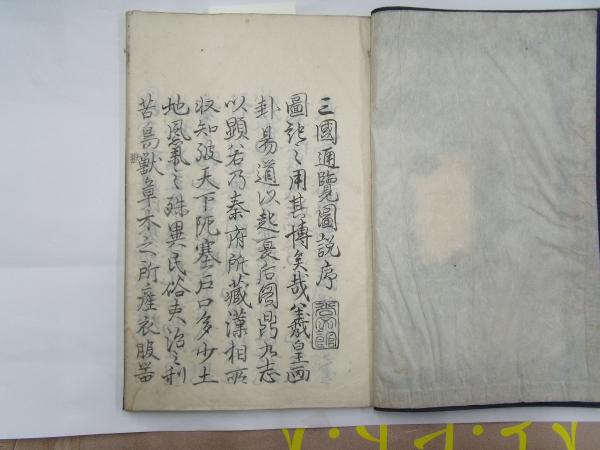 三國通覽圖說序
圖訛之用其博矣哉羲皇画
卦易道以起夏后圖鼎九志
以顕若乃秦府所藏漢相所
収知彼天下阨塞戸口多少土
地風氣之殊異民俗夷治之利
苦鳥獣草木之所産衣服器